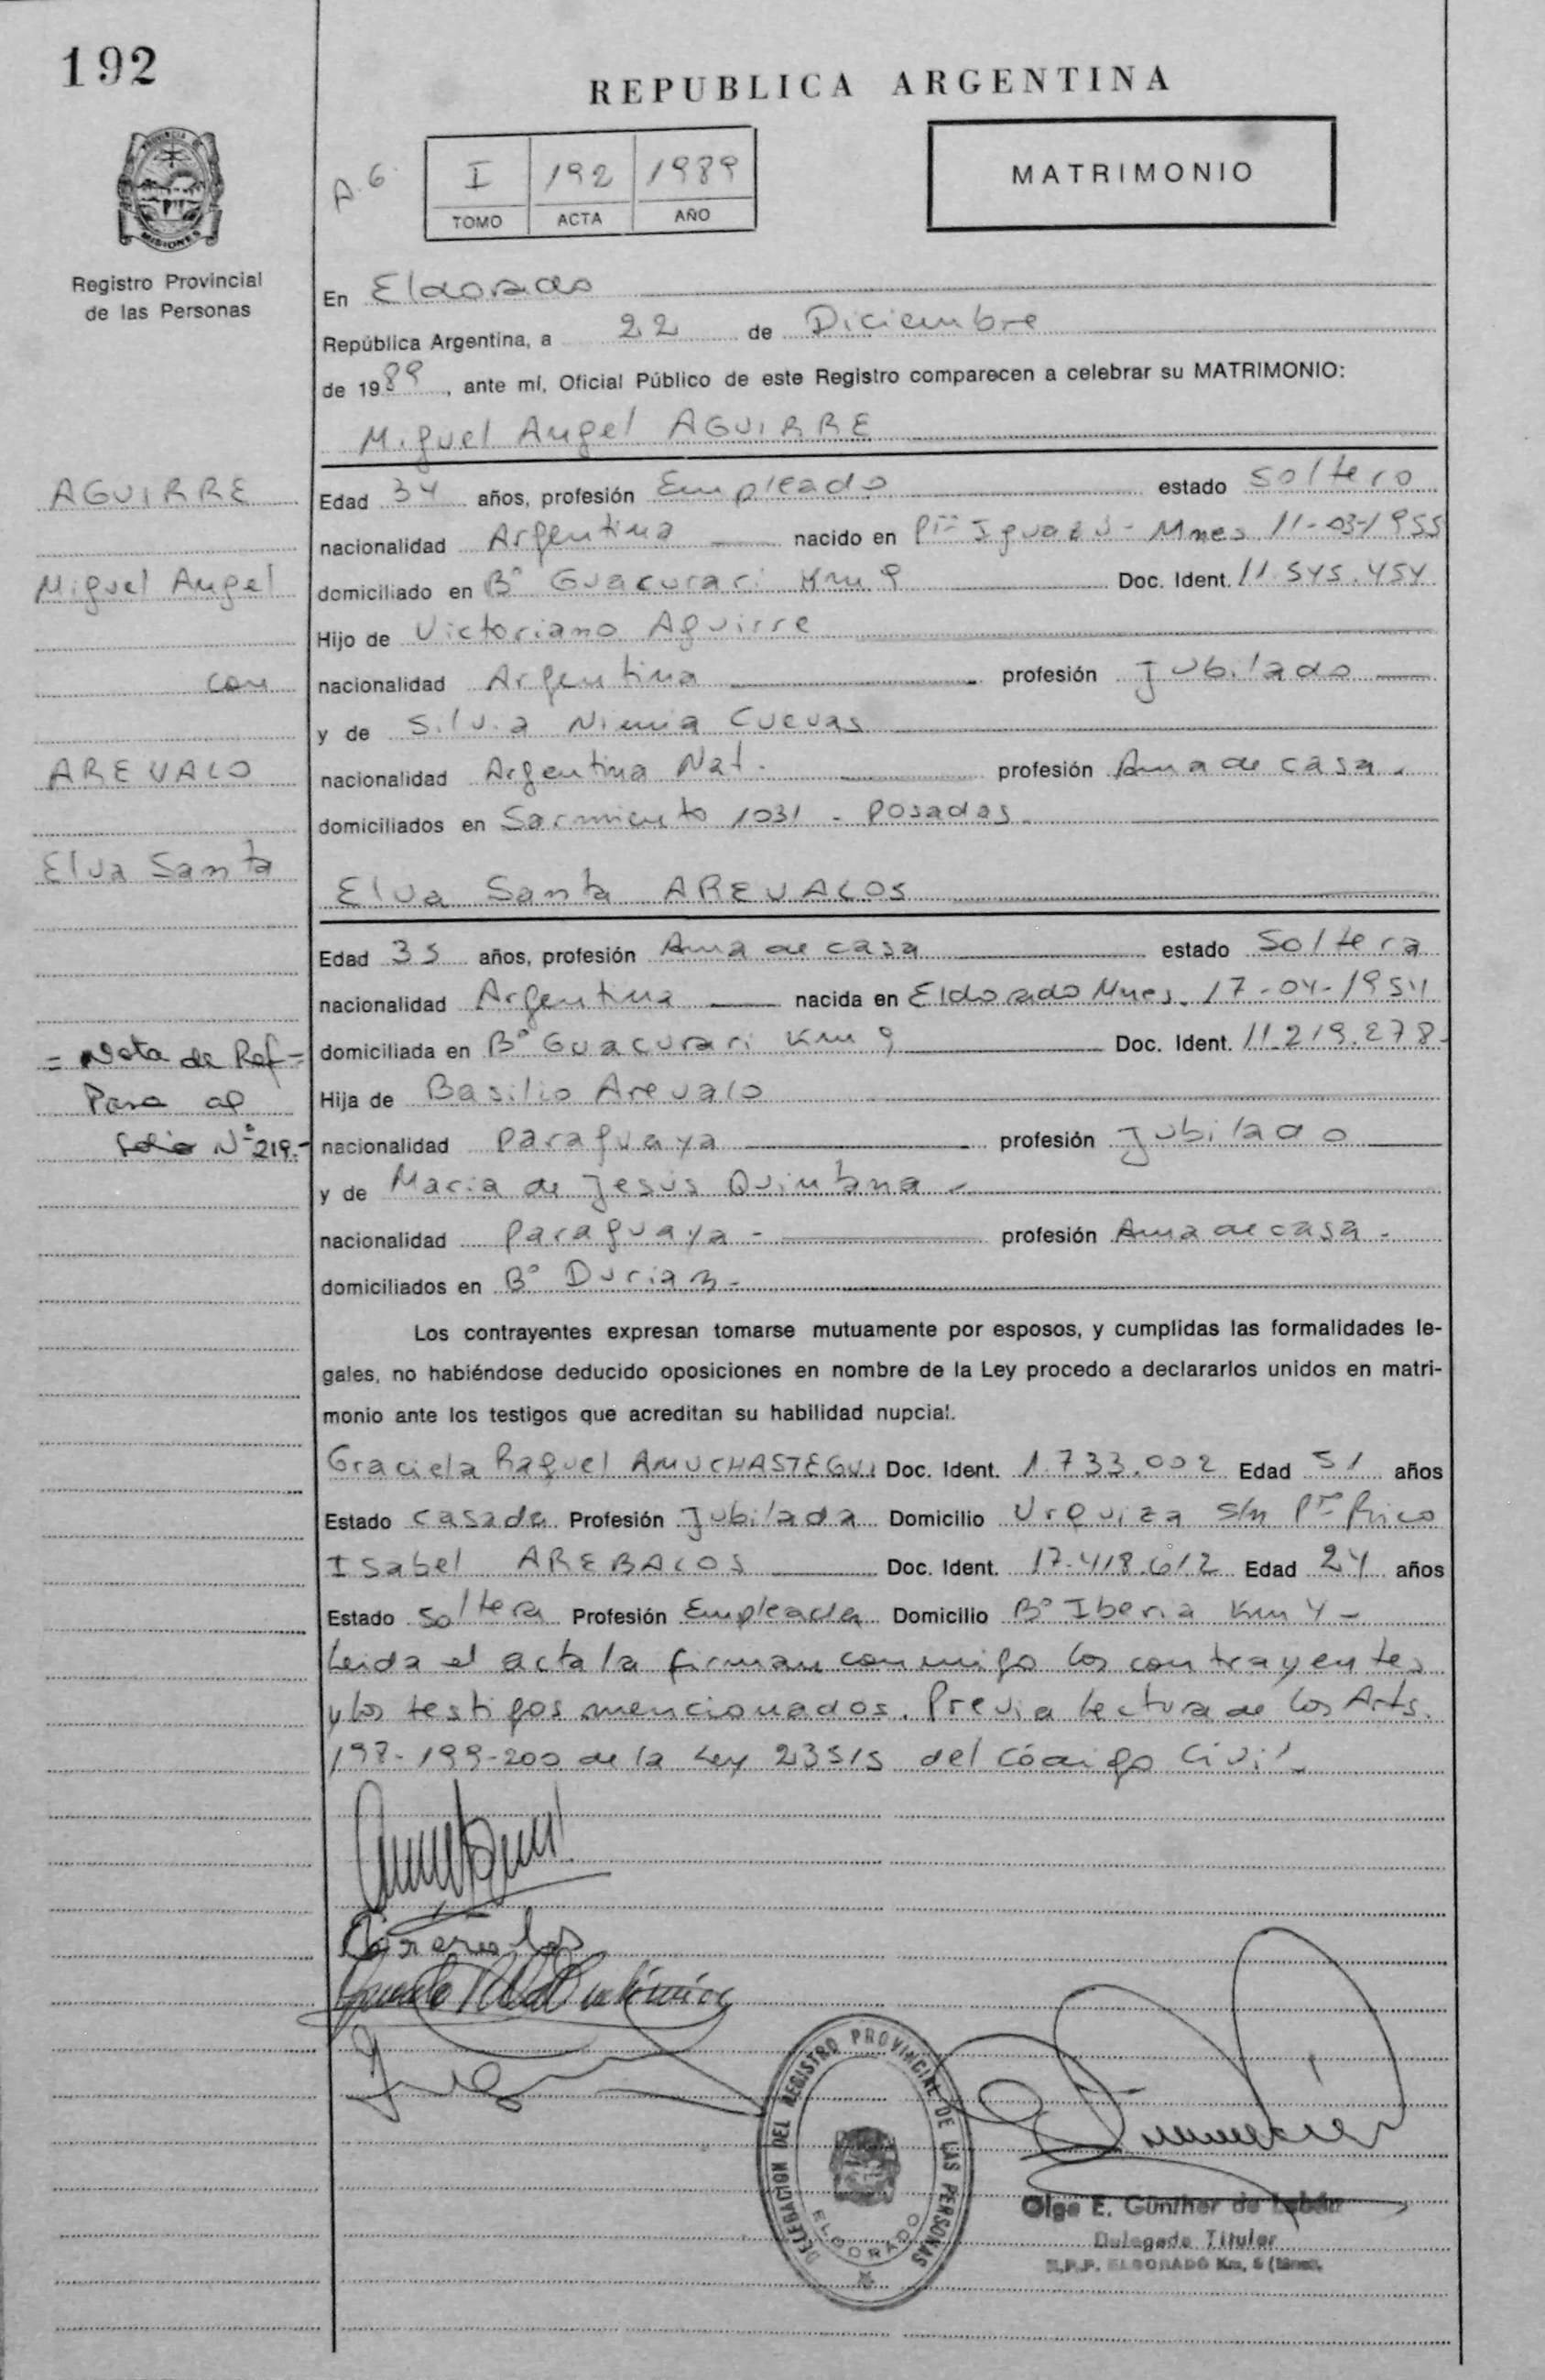 192
REPUBLICA ARGENTINA
PROVINCIA
MISIONES
Registro Provincial
de las Personas
A. G.
I 192 1989
TOMO ACTA AÑO
MATRIMONIO
En Eldorado
República Argentina, a 22 de Diciembre
de 1989, ante mí, Oficial Público de este Registro comparecen a celebrar su MATRIMONIO:
Miguel Angel AGUIRRE
AGUIRRE
Edad 34 años, profesión Empleado estado Soltero
nacionalidad Argentina nacido en Pto Iguazú - Mnes 11-03-1955
Miguel Angel
domiciliado en Bº Guacurari Km 9 Doc. Ident. 11.545.454
Hijo de Victoriano Aguirre
con
nacionalidad Argentina profesión Jubilado
y de Silvia Nimia Cuevas
AREVALO
nacionalidad Argentina Nat. profesión Ama de casa.
domiciliados en Sarmiento 1031 - Posadas.
Elva Santa
Elva Santa AREVALOS
Edad 35 años, profesión Ama de casa estado Soltera
nacionalidad Argentina nacida en Eldorado Mnes. 17-04-1954
= Nota de Ref =
domiciliada en Bº Guacurari Km 9 Doc. Ident. 11.219.278.
Pasa al
Hija de Basilio Arevalo
folio Nº 219.-
nacionalidad paraguaya profesión Jubilado
y de Maria de Jesús Quintana -
nacionalidad paraguaya - profesión Ama de casa.
domiciliados en Bº
Los contrayentes expresan tomarse mutuamente por esposos, y cumplidas las formalidades le-
gales, no habiéndose deducido oposiciones en nombre de la Ley procedo a declararlos unidos en matri-
monio ante los testigos que acreditan su habilidad nupcial.
Graciela Raquel AMUCHASTEGUI Doc. Ident. 1.733.002 Edad 51 años
Estado Casada Profesión Jubilada Domicilio Urquiza s/n Pto Rico
Isabel AREBALOS Doc. Ident. 17.418.612 Edad 24 años
Estado Soltera Profesión Empleada Domicilio Bº Iberia Km 4 -
Leida el acta la firman conmigo los contrayentes
y los testigos mencionados. Previa lectura de los Arts.
198-199-200 de la Ley 23515 del Código Civil.
DELEGACION DEL REGISTRO PROVINCIAL DE LAS PERSONAS
ELDORADO
Olga E. Günther de
Delegada Titular
R.P.P. ELDORADO Km.